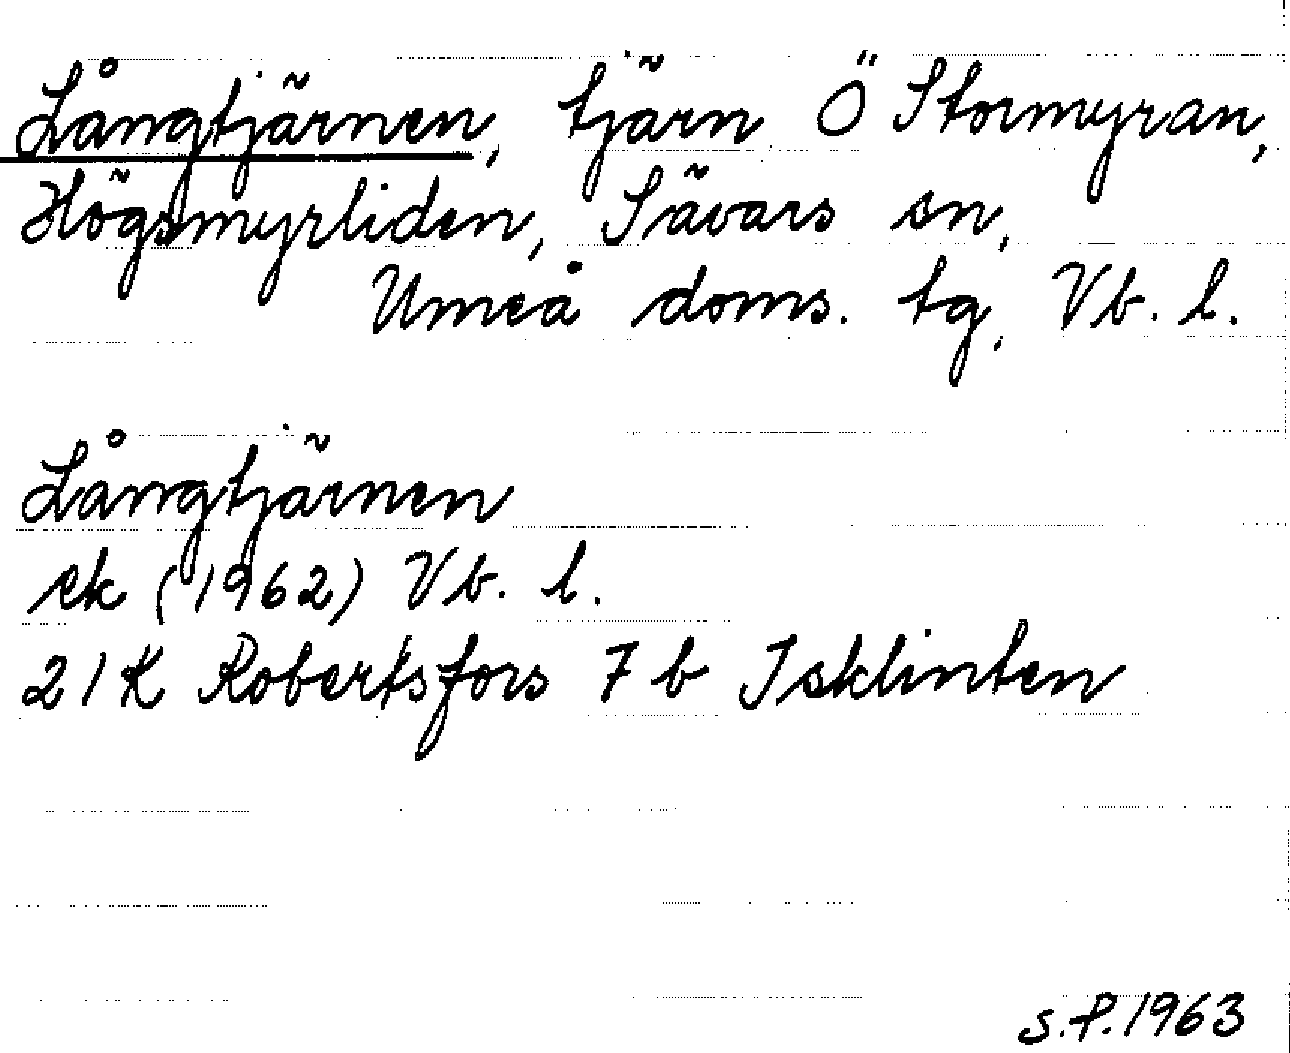 Långtjärnen, tjärn Ö Stormyran,
Högsmyrliden, Sävars sn,
Umeå doms. tg, Vb. l.
Långtjärnen
ek (1962) Vb. l.
21K Robertsfors 7 b Isklinten
S.P. 1963